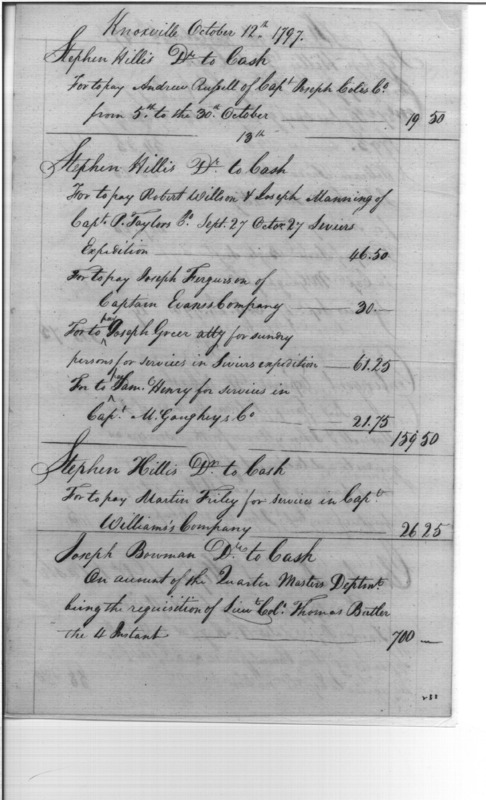 Knoxville October 12th 1797.
Stephen Hillis Dr to Cash
For to pay Andrew Russell of Capt Joseph Coles Co
from 5th to the 30th October 19 50
13th
Stephen Hillis Dr to Cash
For to pay Robert Willson & Joseph Manning of
Capt P. Taylors Co Sept. 27 Octor 27 Seviers
Expedition 46.50
For to pay Joseph Fergusson of
Captain Evans Company 30.—
For to pay Joseph Greer atty for sundry
persons for services in Siviers expedition 61.25
For to pay Sam. Henry for services in
Capt McGaugheys Co 21.75
159 50
Stephen Hillis Dr to Cash
For to pay Martin for service in Capt
Williams's Company 26 25
Joseph Bowman Dr to Cash
On account of the Quarter Masters Deptmt
being the requisition of Lieut Col. Thomas Butler
the 4 Instant 700 —